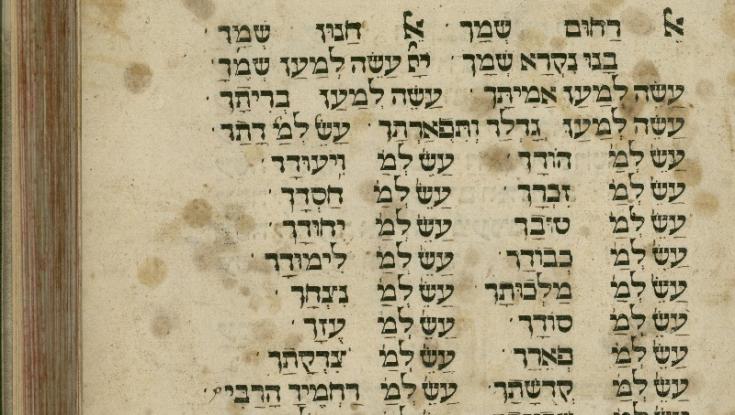 אל רחום שמך אל חנון שמך
בנו נקרא שמך יי עשה למען שמך
עשה למען אמיתך עשה למען בריתך
עשה למען גדלך ותפארתך עש למ דתך
עש למ הודך עש למ ויעודך
עש למ זכרך עש למ חסדך
עש למ טובך עש למ יחודך
עש למ כבודך עש למ לימודך
עש למ מלכותך עש למ נצחך
עש למ סודך עש למ עזך
עש למ פארך עש למ צדקתך
עש למ קדשתך עש למ רחמיך הרבי